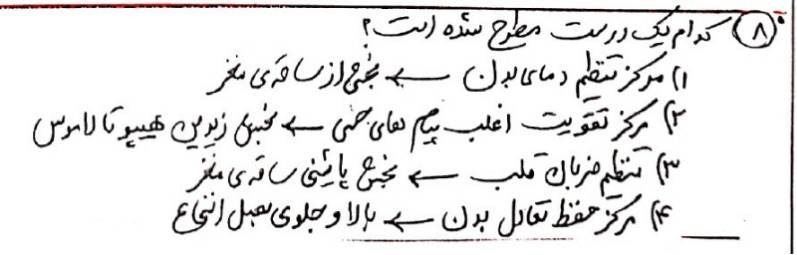 ۸) کدام یک درست مطرح شده است؟
۱) مرکز تنظیم دمای بدن ← بخشی از ساقه‌ی مغز
۲) مرکز تقویت اغلب پیام های حسی ← بخش زیرین هیپوتالاموس
۳) تنظیم ضربان قلب ← بخش پایینی ساقه‌ی مغز
۴) مرکز حفظ تعادل بدن ← بالا و جلوی بصل النخاع